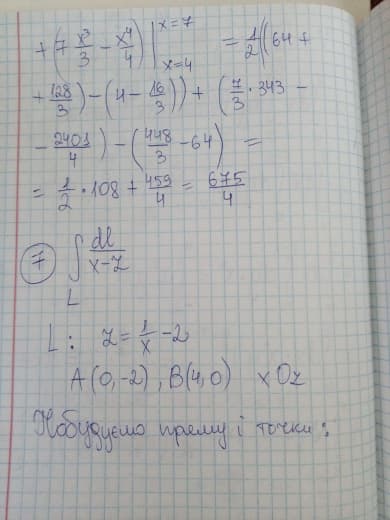 + (7 x³/3 − x⁴/4) |x=7 x=4 = 1/2((64 +
+ 128/3) − (4 − 16/3)) + (7/3 · 343 −
− 2401/4) − (448/3 − 64) =
= 1/2 · 108 + 459/4 = 675/4
7 ∫ dl/(x−z)
L
L: z = 1/x − 2
A(0,−2), B(4,0) xOz
Побудуємо пряму і точки: